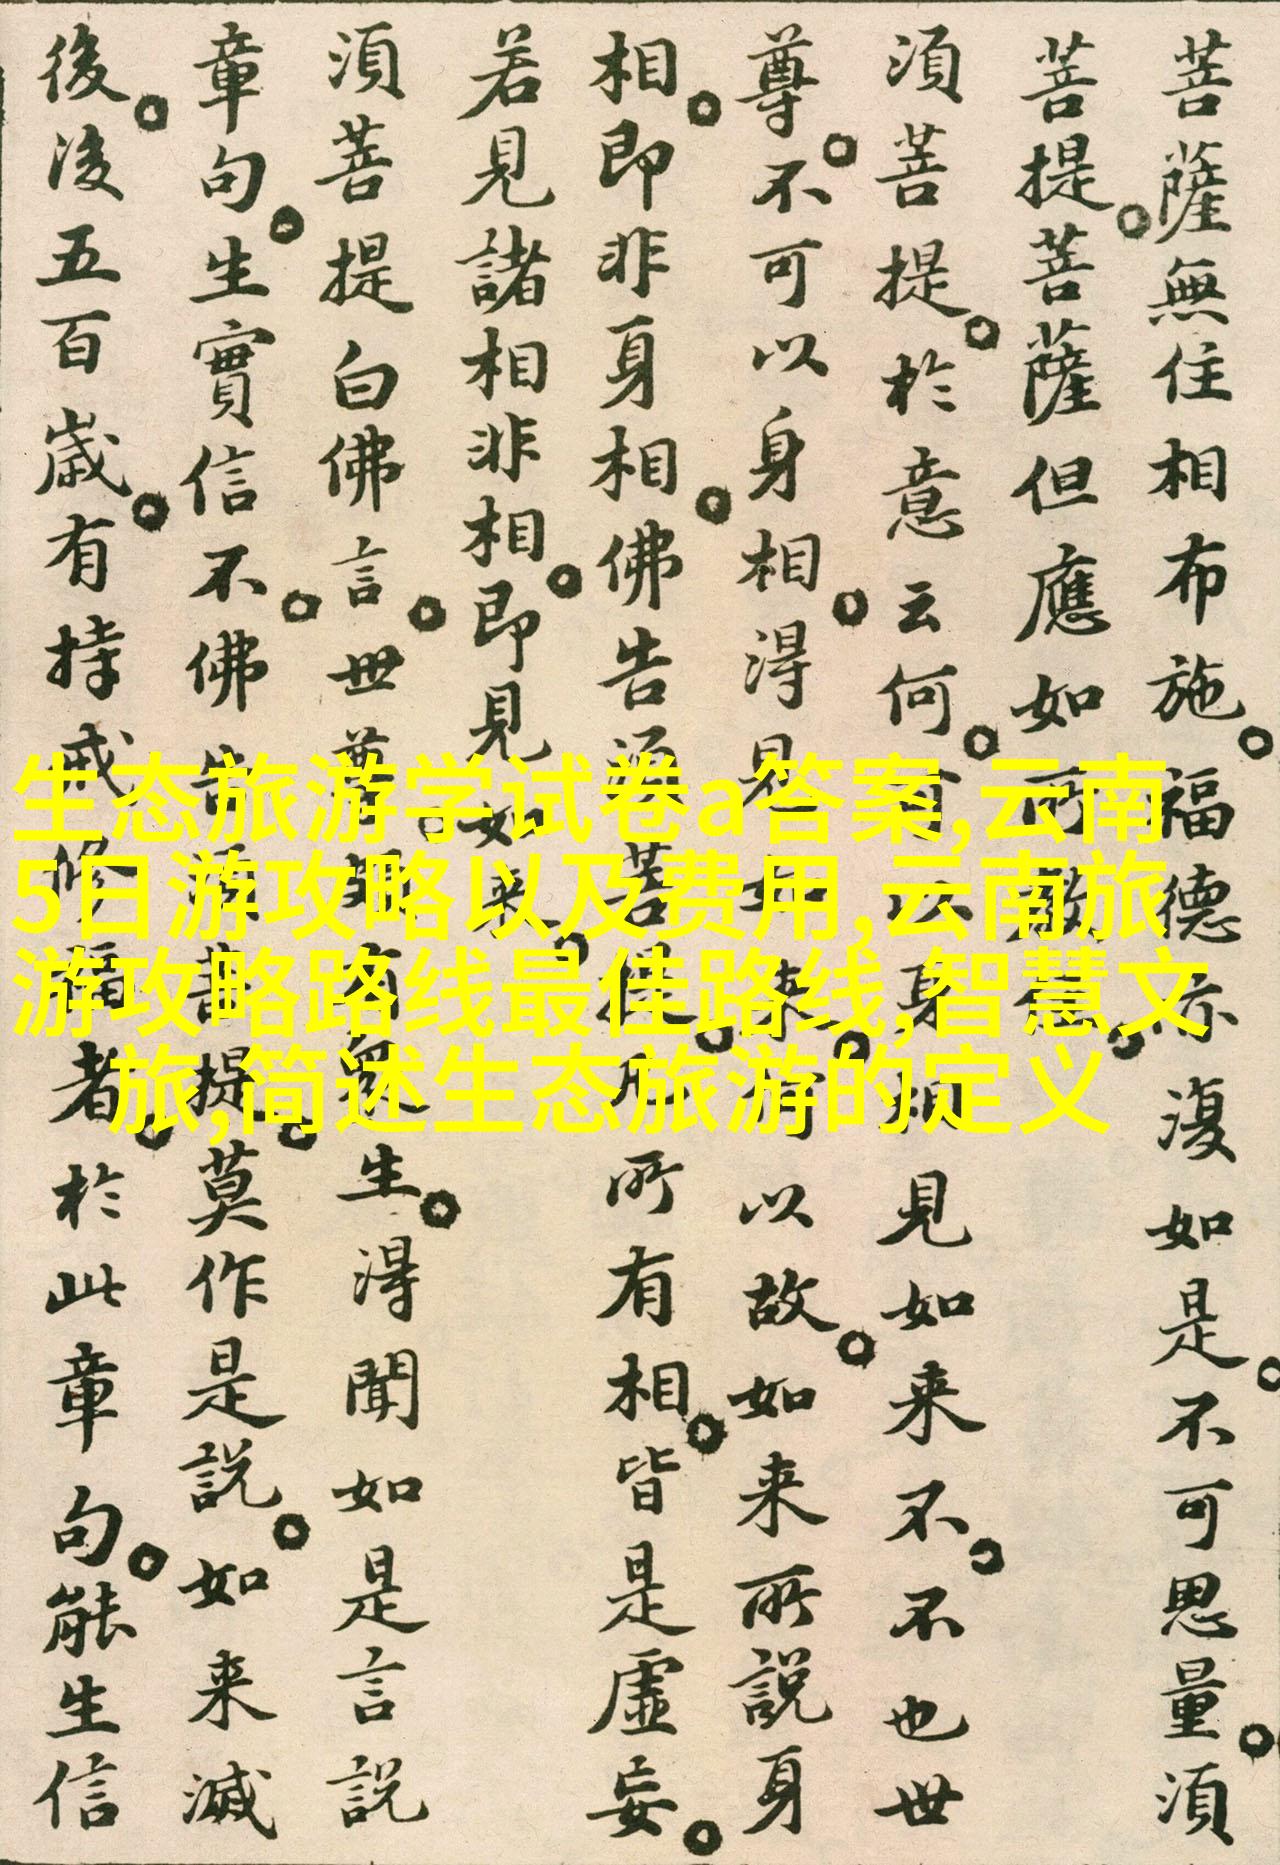 菩薩無住相布施。福德亦復如是。不可思量。須
菩提。菩薩但應如所教
須菩提。於意云何。可以身相見如来不。不也世
尊。不可以身相。得見如来。何以故。如来所說身
相。即非身相。佛告須菩提。凡所有相。皆是虛妄。
若見諸相非相。即見如来。
須菩提白佛言。世尊。頗有衆生。得聞如是言說
章句。生實信不。佛告須菩提。莫作是說。如来滅
後。後五百歲。有持戒修福者。於此章句。能生信
生态旅游学试卷a答案,云南
5日游攻略以及费用,云南旅
游攻略路线最佳路线,智慧文
旅,简述生态旅游的定义